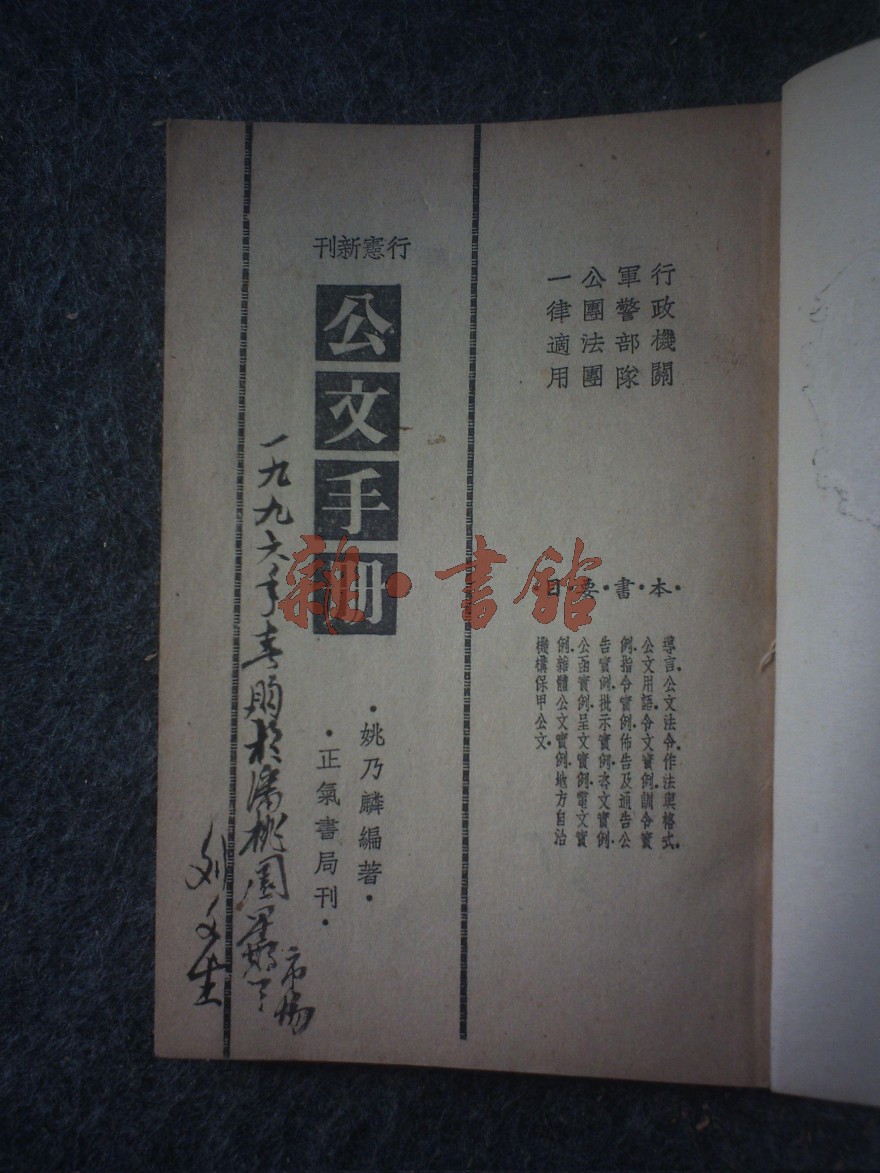 行政機關
軍警部隊
公團法團
一律適用
本·書·要·目
導言.公文法令.作法與格式.
公文用語.令文實例.訓令實
例.指令實例.佈告及通告公
告實例.批示實例.咨文實例.
公函實例.呈文實例.電文實
例.雜體公文實例.地方自治
機構保甲公文.
行憲新刊
公文手册
·姚乃麟編著·
·正氣書局刊·
一九九六年春购於潘桃園
市场
刘文生
雜·書館